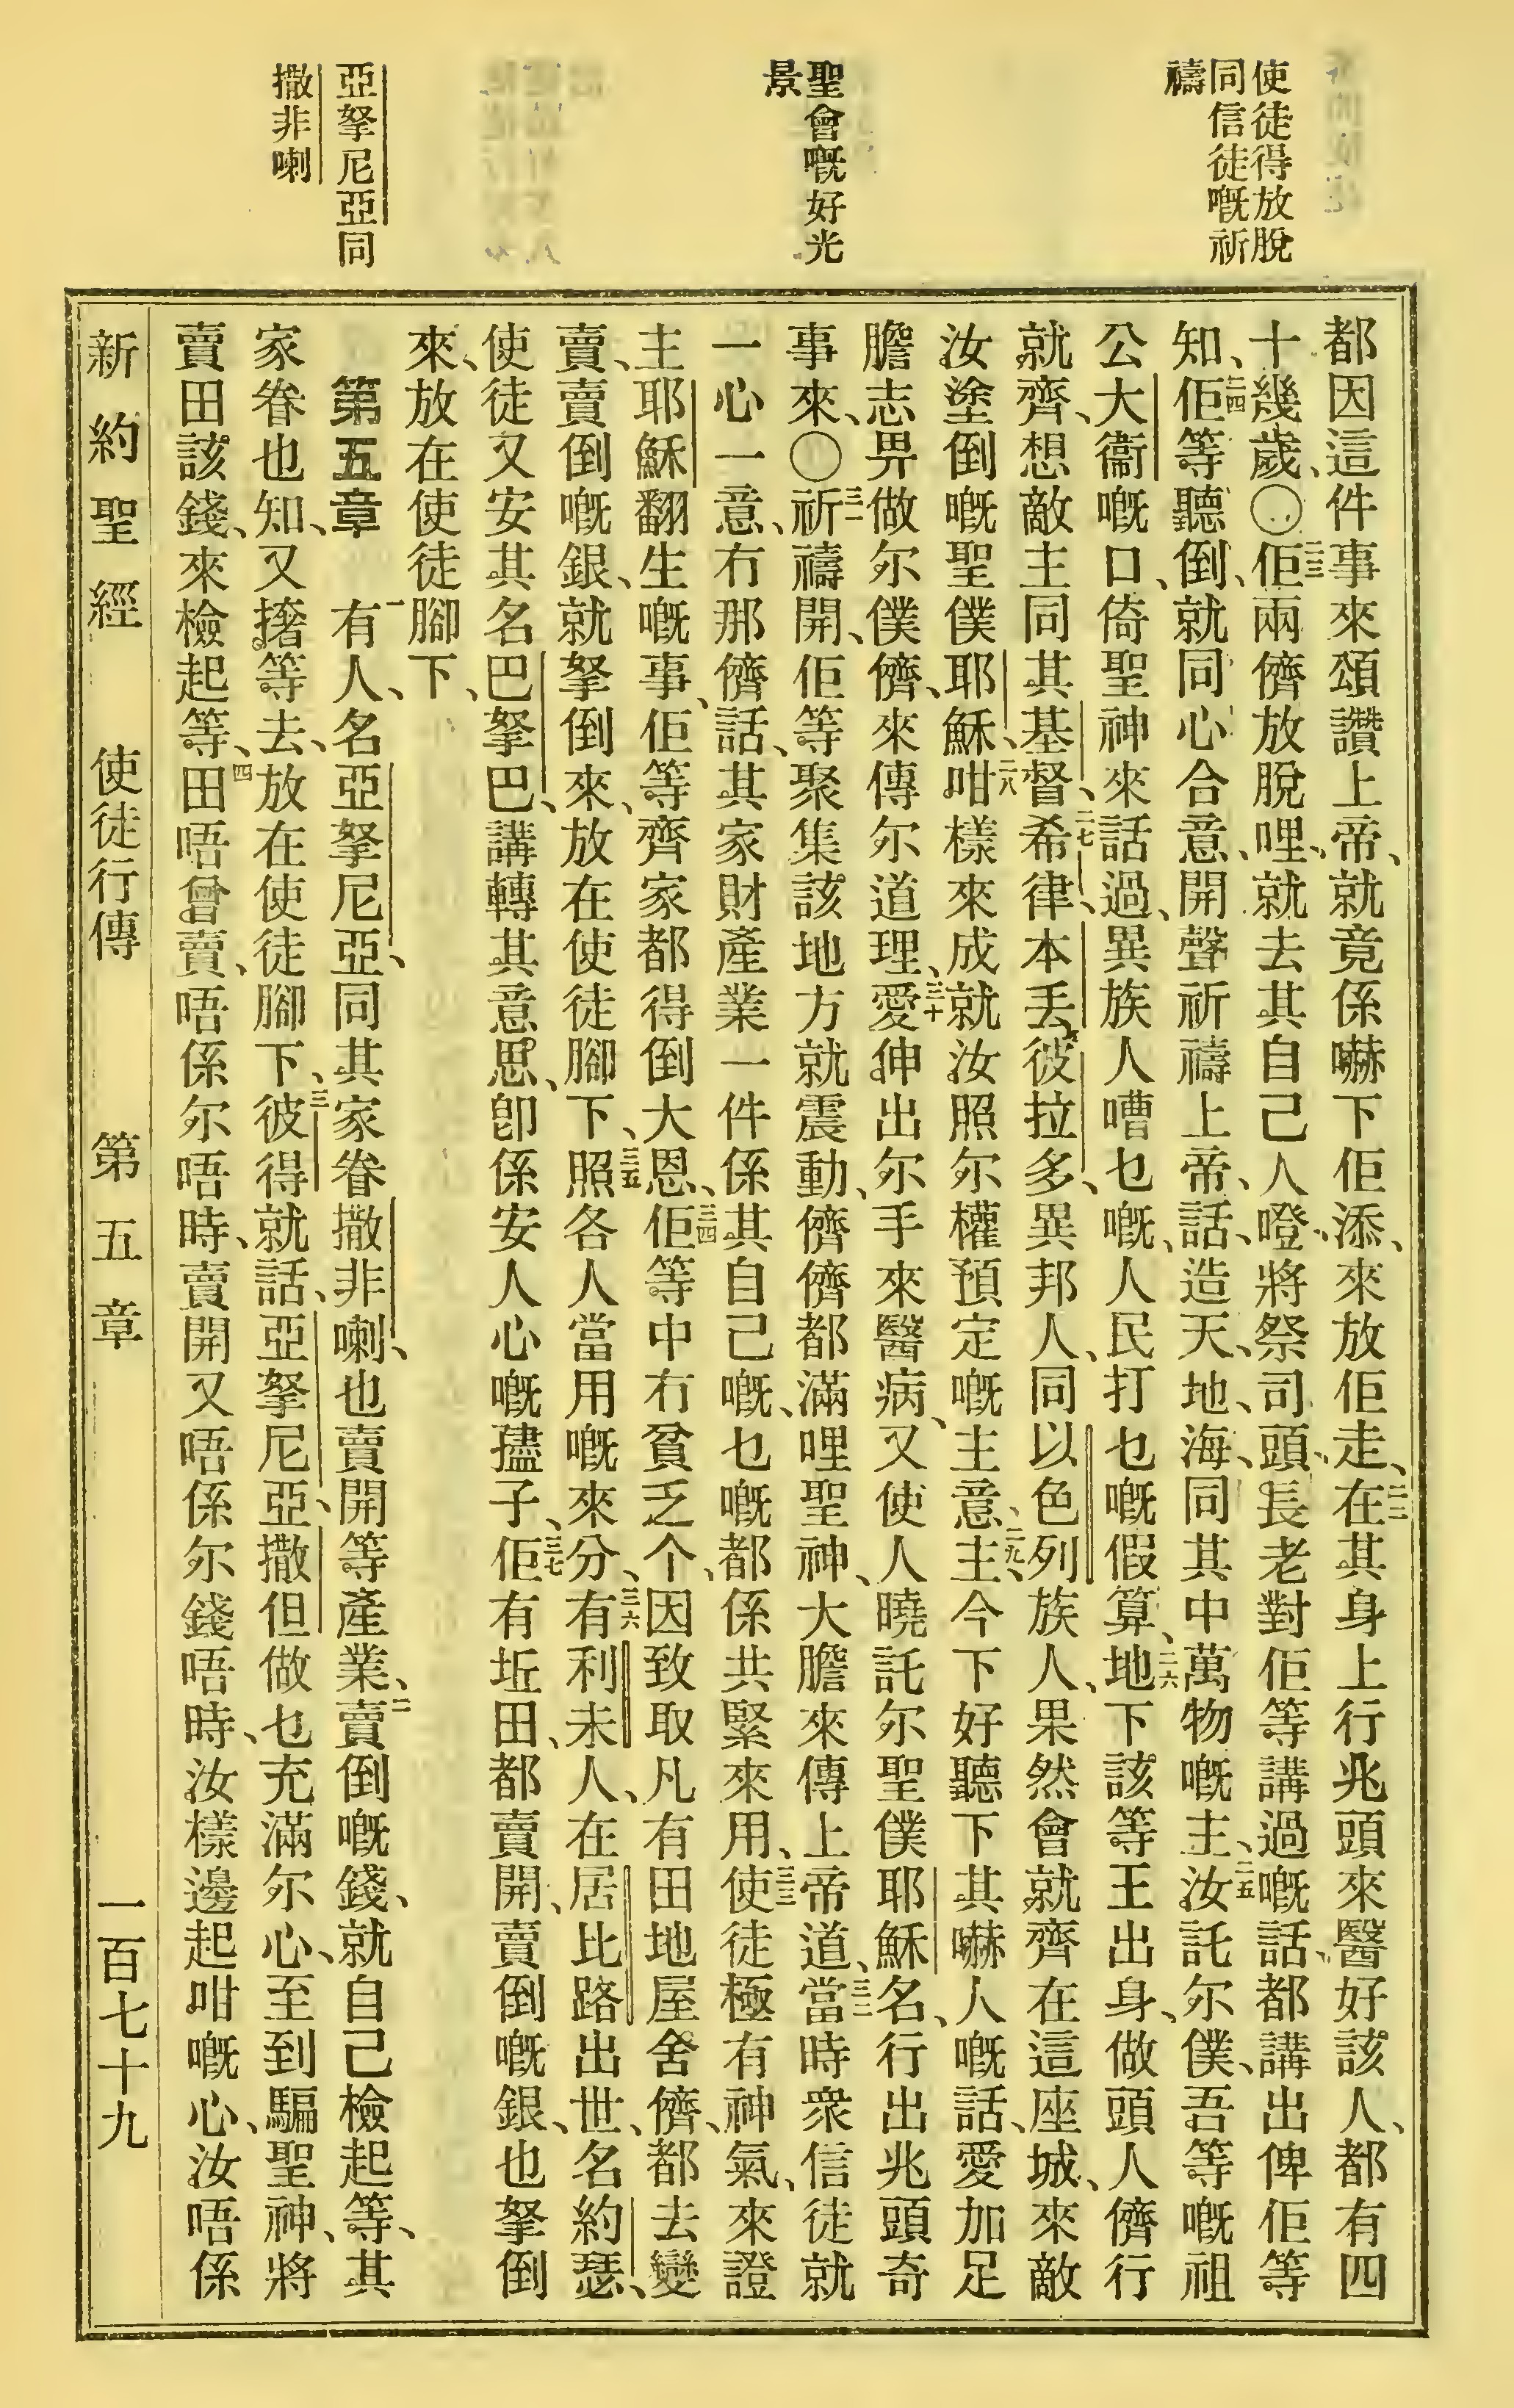 使徒得放脫
同信徒嘅祈
禱
聖會嘅好光
景
亞拏尼亞同
撒非喇
都因這件事來頌讚上帝、就竟係嚇下佢添、來放佢走、二二在其身上行兆頭來醫好該人、都有四
十幾歲、〇二三佢兩儕放脫哩、就去其自己人噔、將祭司頭、長老對佢等講過嘅話、都講出俾佢等
知、二四佢等聽倒、就同心合意、開聲祈禱上帝、話、造天、地、海、同其中萬物嘅主、二五汝託尔僕、吾等嘅祖
公大衞嘅口、倚聖神來話過、異族人嘈乜嘅、人民打乜嘅假算、二六地下該等王出身、做頭人儕行
就齊、想敵主同其基督、二七希律、本丟彼拉多、異邦人、同以色列族人、果然會就齊在這座城、來敵
汝塗倒嘅聖僕耶穌、二八咁樣來成就汝照尔權預定嘅主意、二九主、今下好聽下其嚇人嘅話、愛加足
膽志畀做尔僕儕、來傳尔道理、三十愛伸出尔手來醫病、又使人曉託尔聖僕耶穌名、行出兆頭奇
事來、〇三一祈禱開、佢等聚集該地方就震動、儕儕都滿哩聖神、大膽來傳上帝道、三二當時衆信徒就
一心一意、冇那儕話、其家財產業一件係其自己嘅、乜嘅都係共緊來用、三三使徒極有神氣、來證
主耶穌翻生嘅事、佢等齊家都得倒大恩、三四佢等中冇貧乏个、因致取凡有田地屋舍儕、都去變
賣、賣倒嘅銀、就拏倒來、放在使徒腳下、三五照各人當用嘅來分、三六有利未人、在居比路出世、名約瑟、
使徒又安其名巴拏巴、講轉其意思、卽係安人心嘅孻子、三七佢有坵田、都賣開、賣倒嘅銀、也拏倒
來、放在使徒腳下、
第五章　一有人、名亞拏尼亞、同其家眷撒非喇、也賣開等產業、二賣倒嘅錢、就自己檢起等、其
家眷也知、又撦等去、放在使徒腳下、三彼得就話、亞拏尼亞、撒但做乜充滿尔心、至到騙聖神、將
賣田該錢、來檢起等、四田唔曾賣、唔係尔唔時、賣開又唔係尔錢唔時、汝樣邊起咁嘅心、汝唔係
新約聖經　使徒行傳　第五章　一百七十九